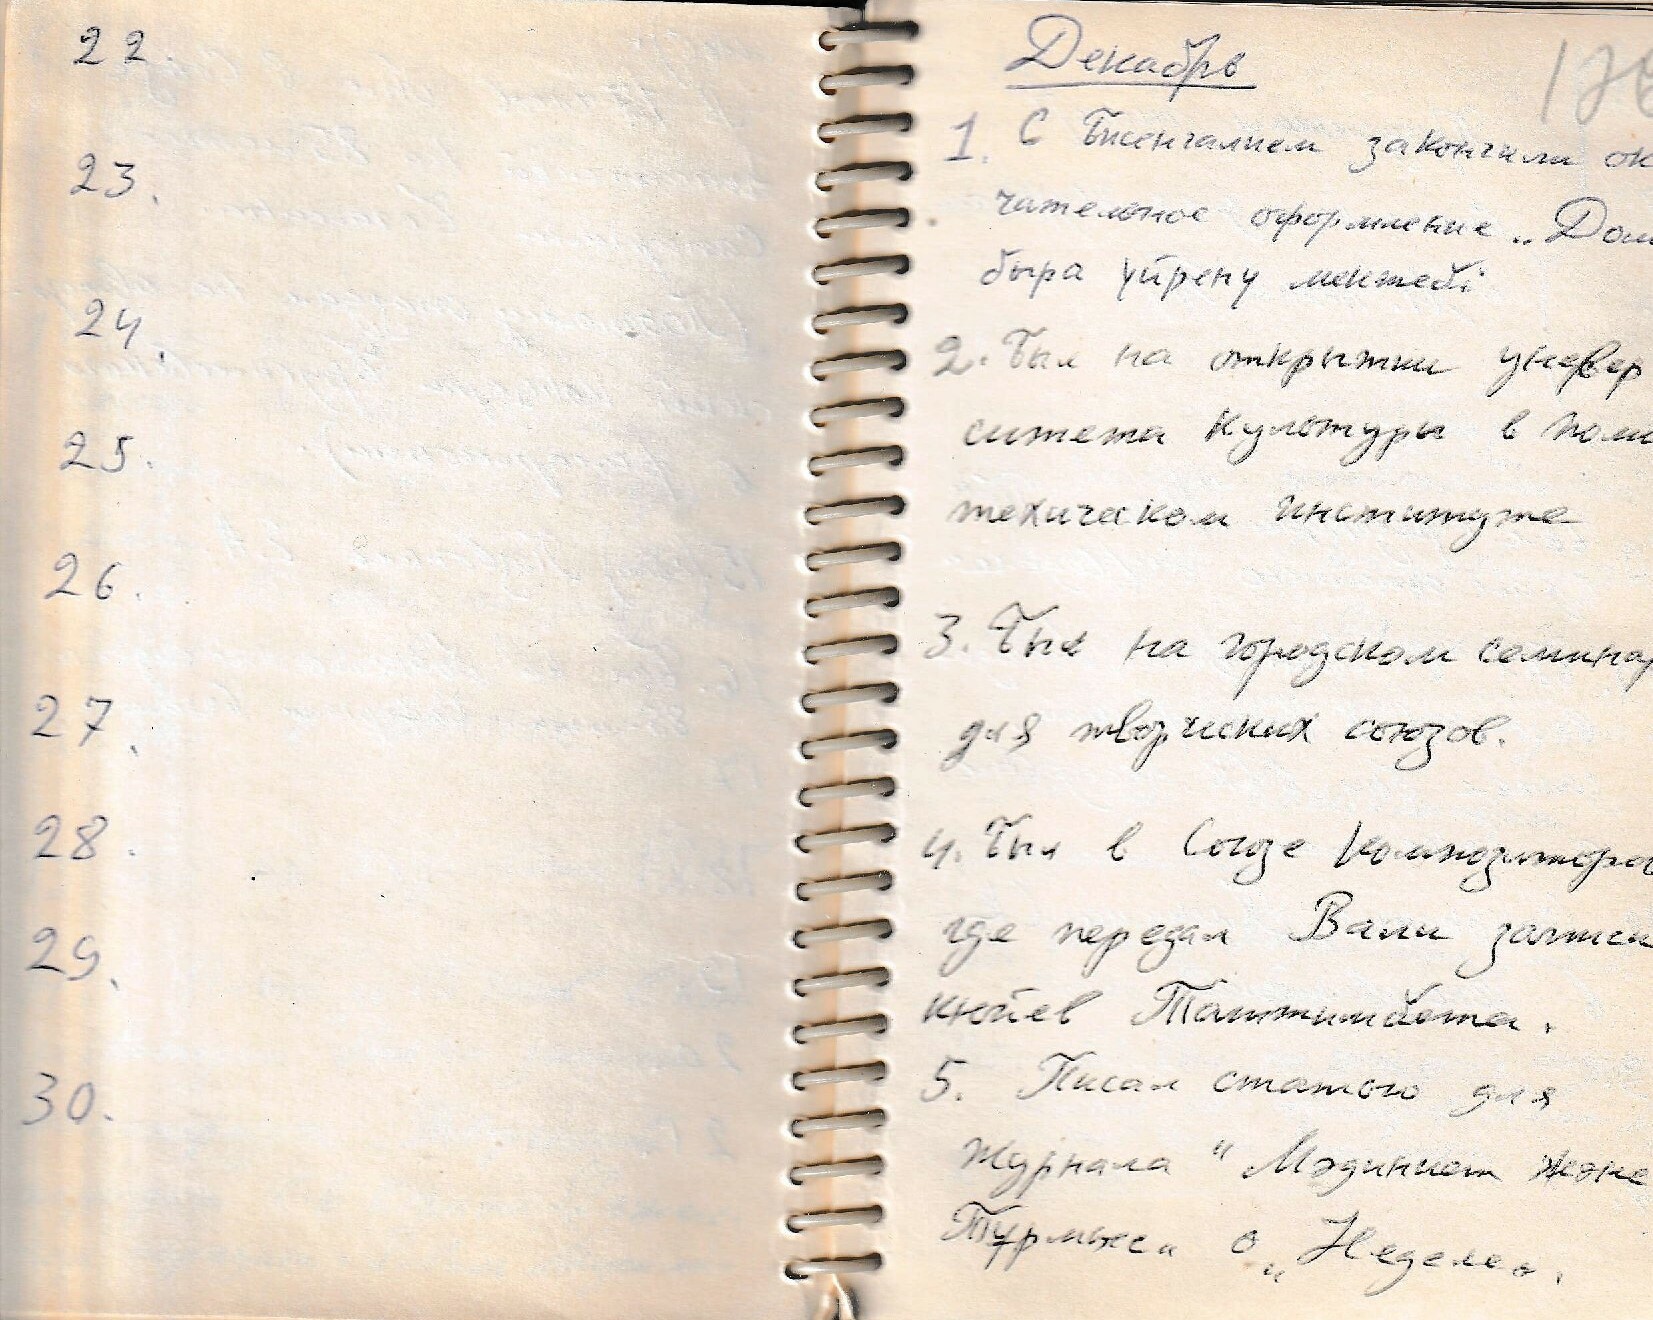 22.
23.
24.
25.
26.
27.
28.
29.
30.
Декабрь
1. С Бисенгалием закончили ок
чательное оформление „Дом
быра үйрену мектебі
2. Был на открытии универ
ситета культуры в поли
техическом институте
3. Был на городском семинар
для творческих союзов.
4. Был в Союзе композиторов
где передал Вали записи
кюйев Таттимбета.
5. Писал статью для
журнала "Мәдиниет және
Тұрмыс" о „Неделе".